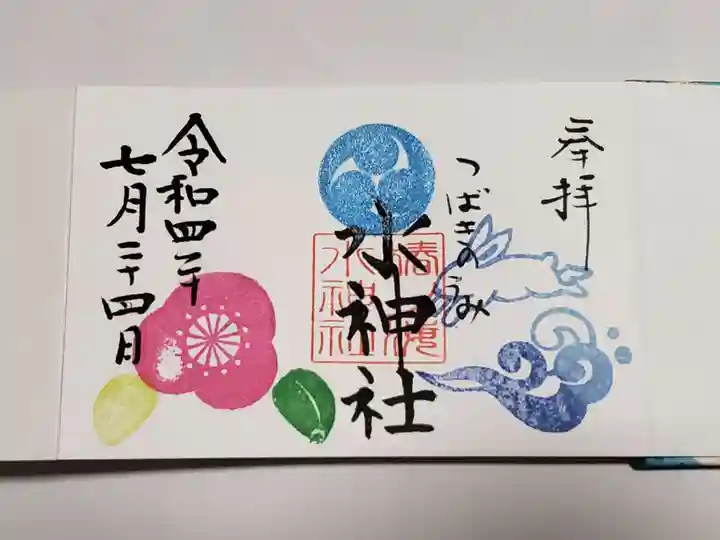 奉拝
つばきのうみ
水神社
椿海
水神社
令和四年
七月二十四日